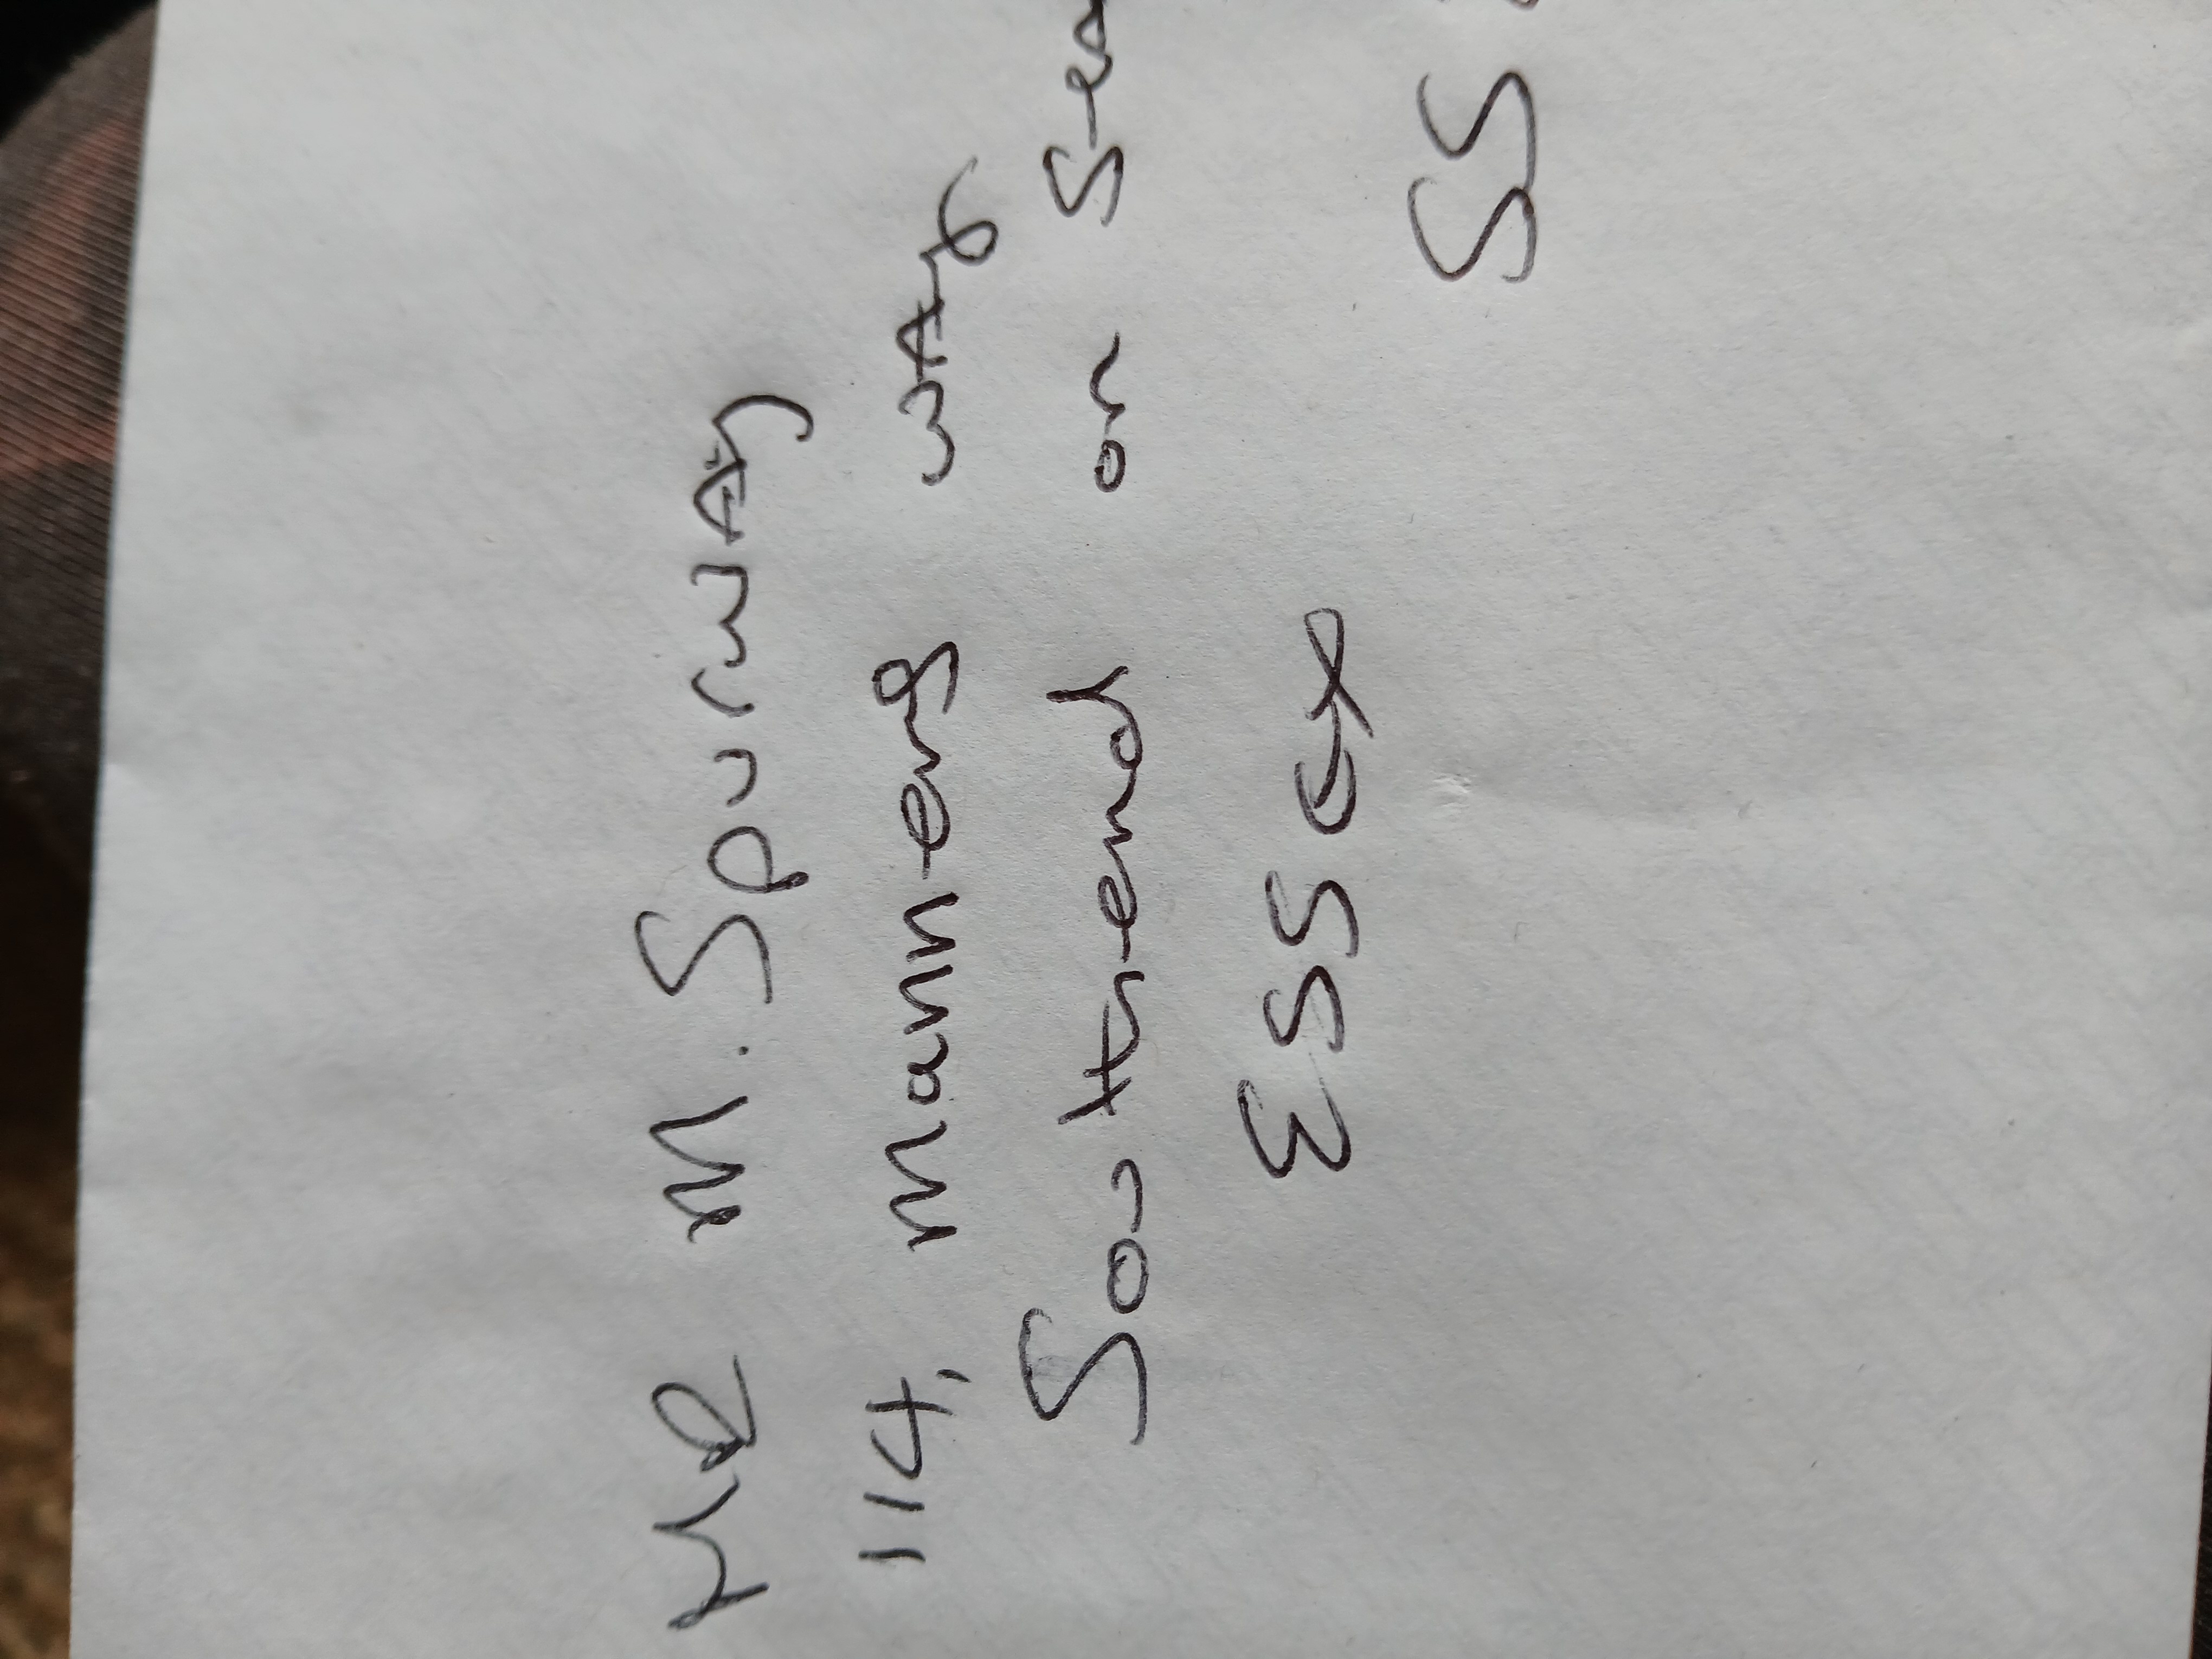 MR M. Spurway
114, mannerg way
Southend on Sea
ESSex
SS